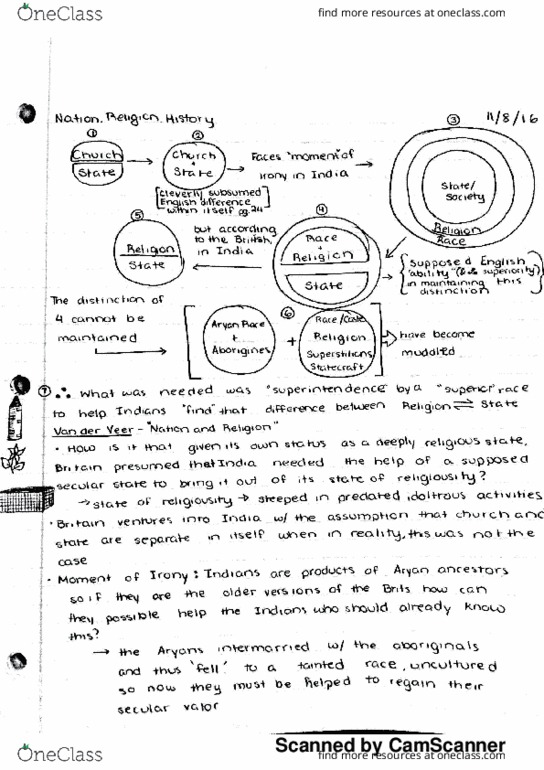 OneClass
find more resources at oneclass.com
Nation, Religion, History
11/8/16
①
Church
State
②
Church
+
State
[cleverly subsumed
English difference
within itself pg.24]
Faces "moment of
irony in India
③
State/
Society
Religion
Race
④
Race
+
Religion
State
{Supposed English
"ability" (& superiority)
in maintaining this
distinction}
but according
to the British,
in India
⑤
Religion
State
The distinction of
4 cannot be
maintained
⑥
Aryan Race
+
Aborigines
+
Race/Caste
Religion
Superstitions
Statecraft
have become
muddled
⑦ ∴ What was needed was "superintendence" by a "superior" race
to help Indians "find" that difference between Religion ⇌ State
Van der Veer - "Nation and Religion"
• How is it that given its own status as a deeply religious state,
Britain presumed that India needed the help of a supposed
secular state to bring it out of its state of religiousity?
→ state of religiousity → steeped in predated idoltrous activities
• Britain ventures into India w/ the assumption that church and
state are separate in itself when in reality, this was not the
case
• Moment of Irony: Indians are products of Aryan ancestors
so if they are the older versions of the Brits how can
they possible help the Indians who should already know
this?
→ the Aryans intermarried w/ the aboriginals
and thus 'fell' to a tainted race, uncultured
so now they must be helped to regain their
secular valor
Scanned by CamScanner
OneClass
find more resources at oneclass.com